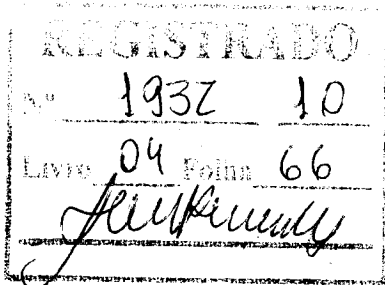 REGISTRADO
Nº 1937 10
Livro 04 Folha 66